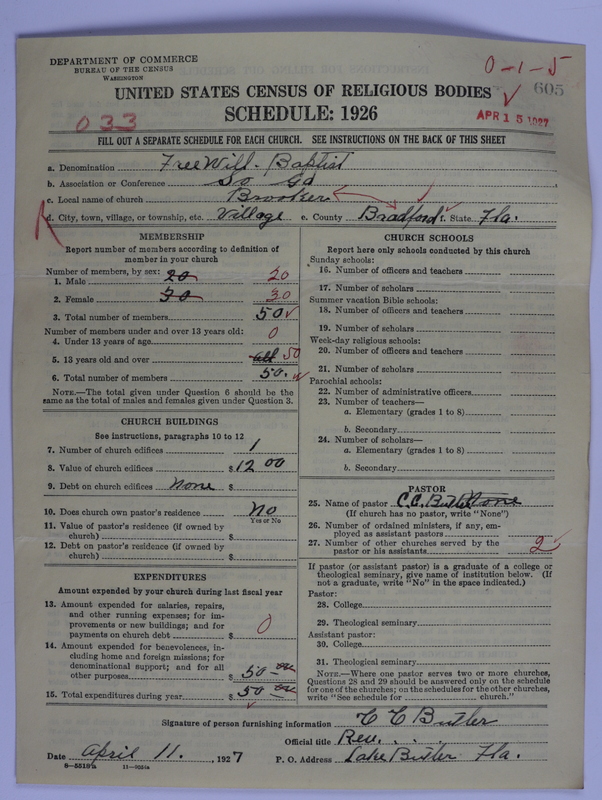 DEPARTMENT OF COMMERCE
BUREAU OF THE CENSUS
WASHINGTON
0-1-5
605
UNITED STATES CENSUS OF RELIGIOUS BODIES
SCHEDULE: 1926
033
APR 15 1927
FILL OUT A SEPARATE SCHEDULE FOR EACH CHURCH. SEE INSTRUCTIONS ON THE BACK OF THIS SHEET
a. Denomination Free Will-Baptist
b. Association or Conference So Ga
c. Local name of church Brooker
d. City, town, village, or township, etc. Village e. County Bradford f. State Fla.
MEMBERSHIP
Report number of members according to definition of
member in your church
Number of members, by sex:
1. Male 20 20
2. Female 30 30
3. Total number of members 50
Number of members under and over 13 years old:
4. Under 13 years of age 0
5. 13 years old and over all 50
6. Total number of members 50.
NOTE.—The total given under Question 6 should be the
same as the total of males and females given under Question 3.
CHURCH BUILDINGS
See instructions, paragraphs 10 to 12
7. Number of church edifices 1
8. Value of church edifices $ 12 00
9. Debt on church edifices none $
10. Does church own pastor's residence no
Yes or No
11. Value of pastor's residence (if owned by
church) $
12. Debt on pastor's residence (if owned by
church) $
EXPENDITURES
Amount expended by your church during last fiscal year
13. Amount expended for salaries, repairs,
and other running expenses; for im-
provements or new buildings; and for
payments on church debt $ 0
14. Amount expended for benevolences, in-
cluding home and foreign missions; for
denominational support; and for all
other purposes $ 50-00
15. Total expenditures during year $ 50 00
CHURCH SCHOOLS
Report here only schools conducted by this church
Sunday schools:
16. Number of officers and teachers
17. Number of scholars
Summer vacation Bible schools:
18. Number of officers and teachers
19. Number of scholars
Week-day religious schools:
20. Number of officers and teachers
21. Number of scholars
Parochial schools:
22. Number of administrative officers
23. Number of teachers—
a. Elementary (grades 1 to 8)
b. Secondary
24. Number of scholars—
a. Elementary (grades 1 to 8)
b. Secondary
PASTOR
25. Name of pastor C.C. none
(If church has no pastor, write "None")
26. Number of ordained ministers, if any, em-
ployed as assistant pastors
27. Number of other churches served by the
pastor or his assistants 2
If pastor (or assistant pastor) is a graduate of a college or
theological seminary, give name of institution below. (If
not a graduate, write "No" in the space indicated.)
Pastor:
28. College
29. Theological seminary
Assistant pastor:
30. College
31. Theological seminary
NOTE.—Where one pastor serves two or more churches,
Questions 28 and 29 should be answered only on the schedule
for one of the churches; on the schedules for the other churches,
write "See schedule for church."
Signature of person furnishing information C C Butler
Official title Rev.
Date April 11. , 1927 P. O. Address Lake Butler Fla.
8-5519a 11-9054a